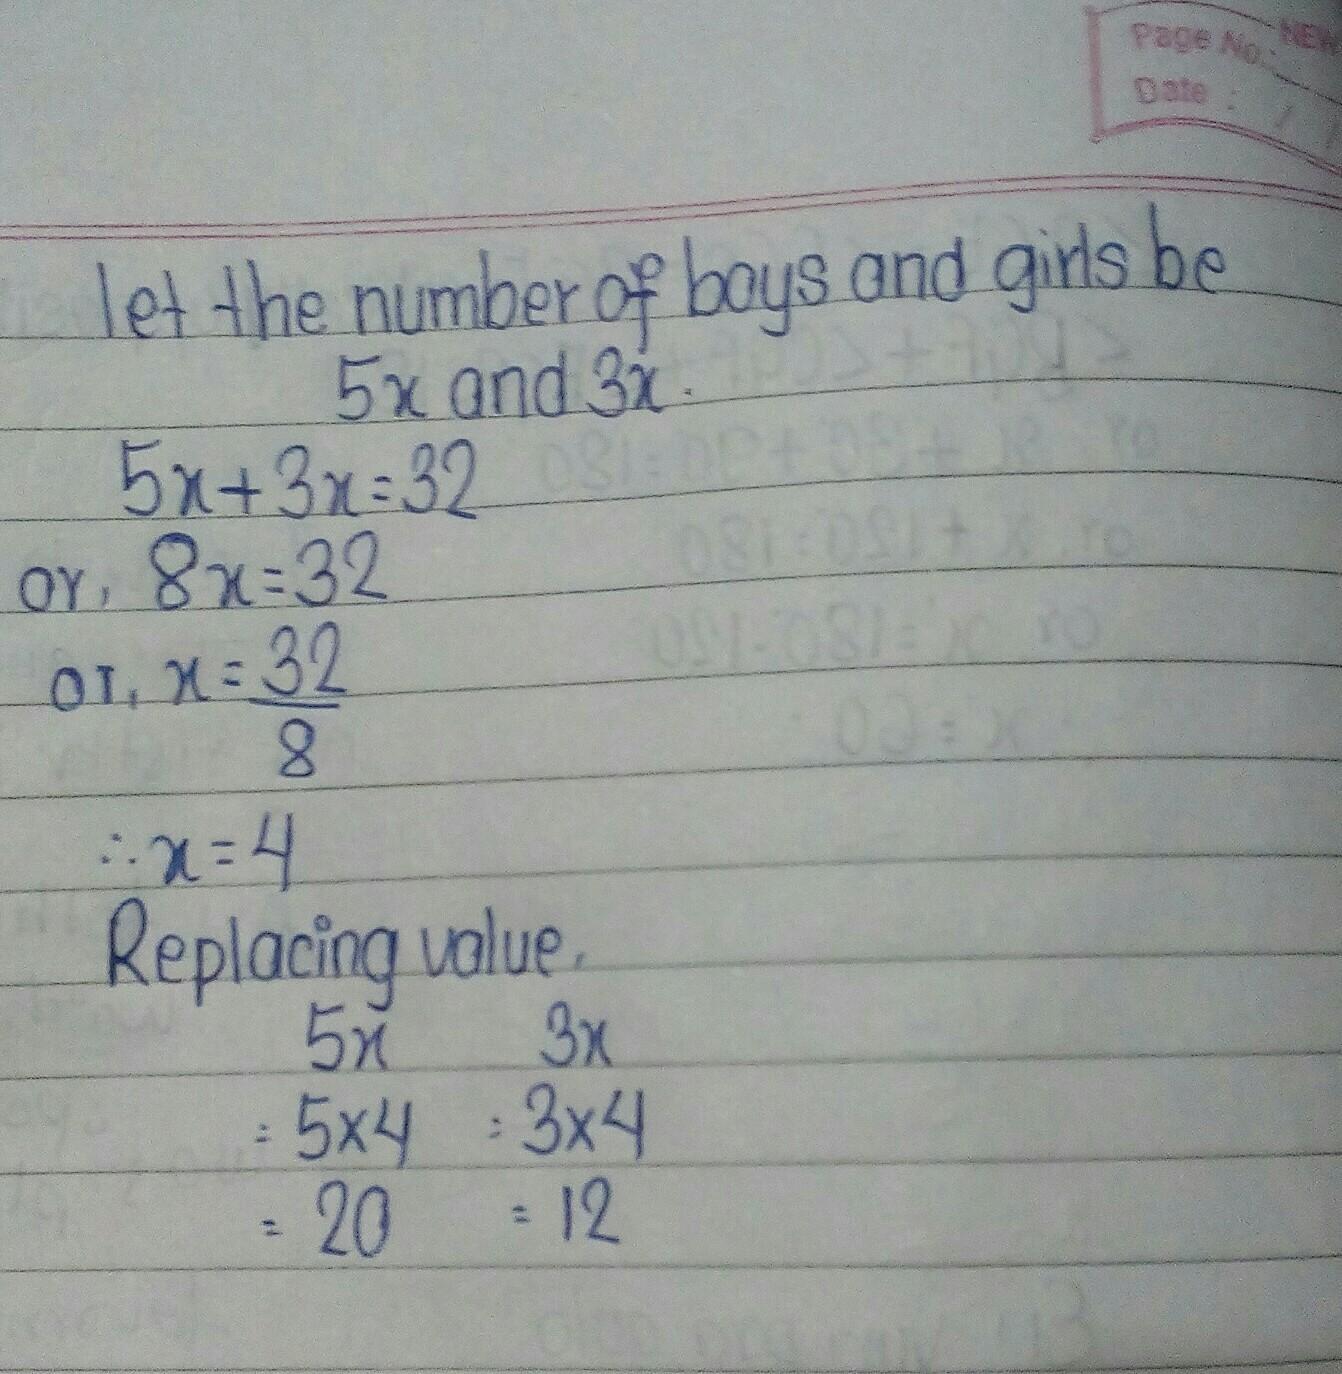 Page No.: NEW
Date : / /
let the number of boys and girls be
5x and 3x.
5x+3x=32
or, 8x=32
or, x=32
8
∴x=4
Replacing value,
5x 3x
= 5x4 = 3x4
= 20 = 12